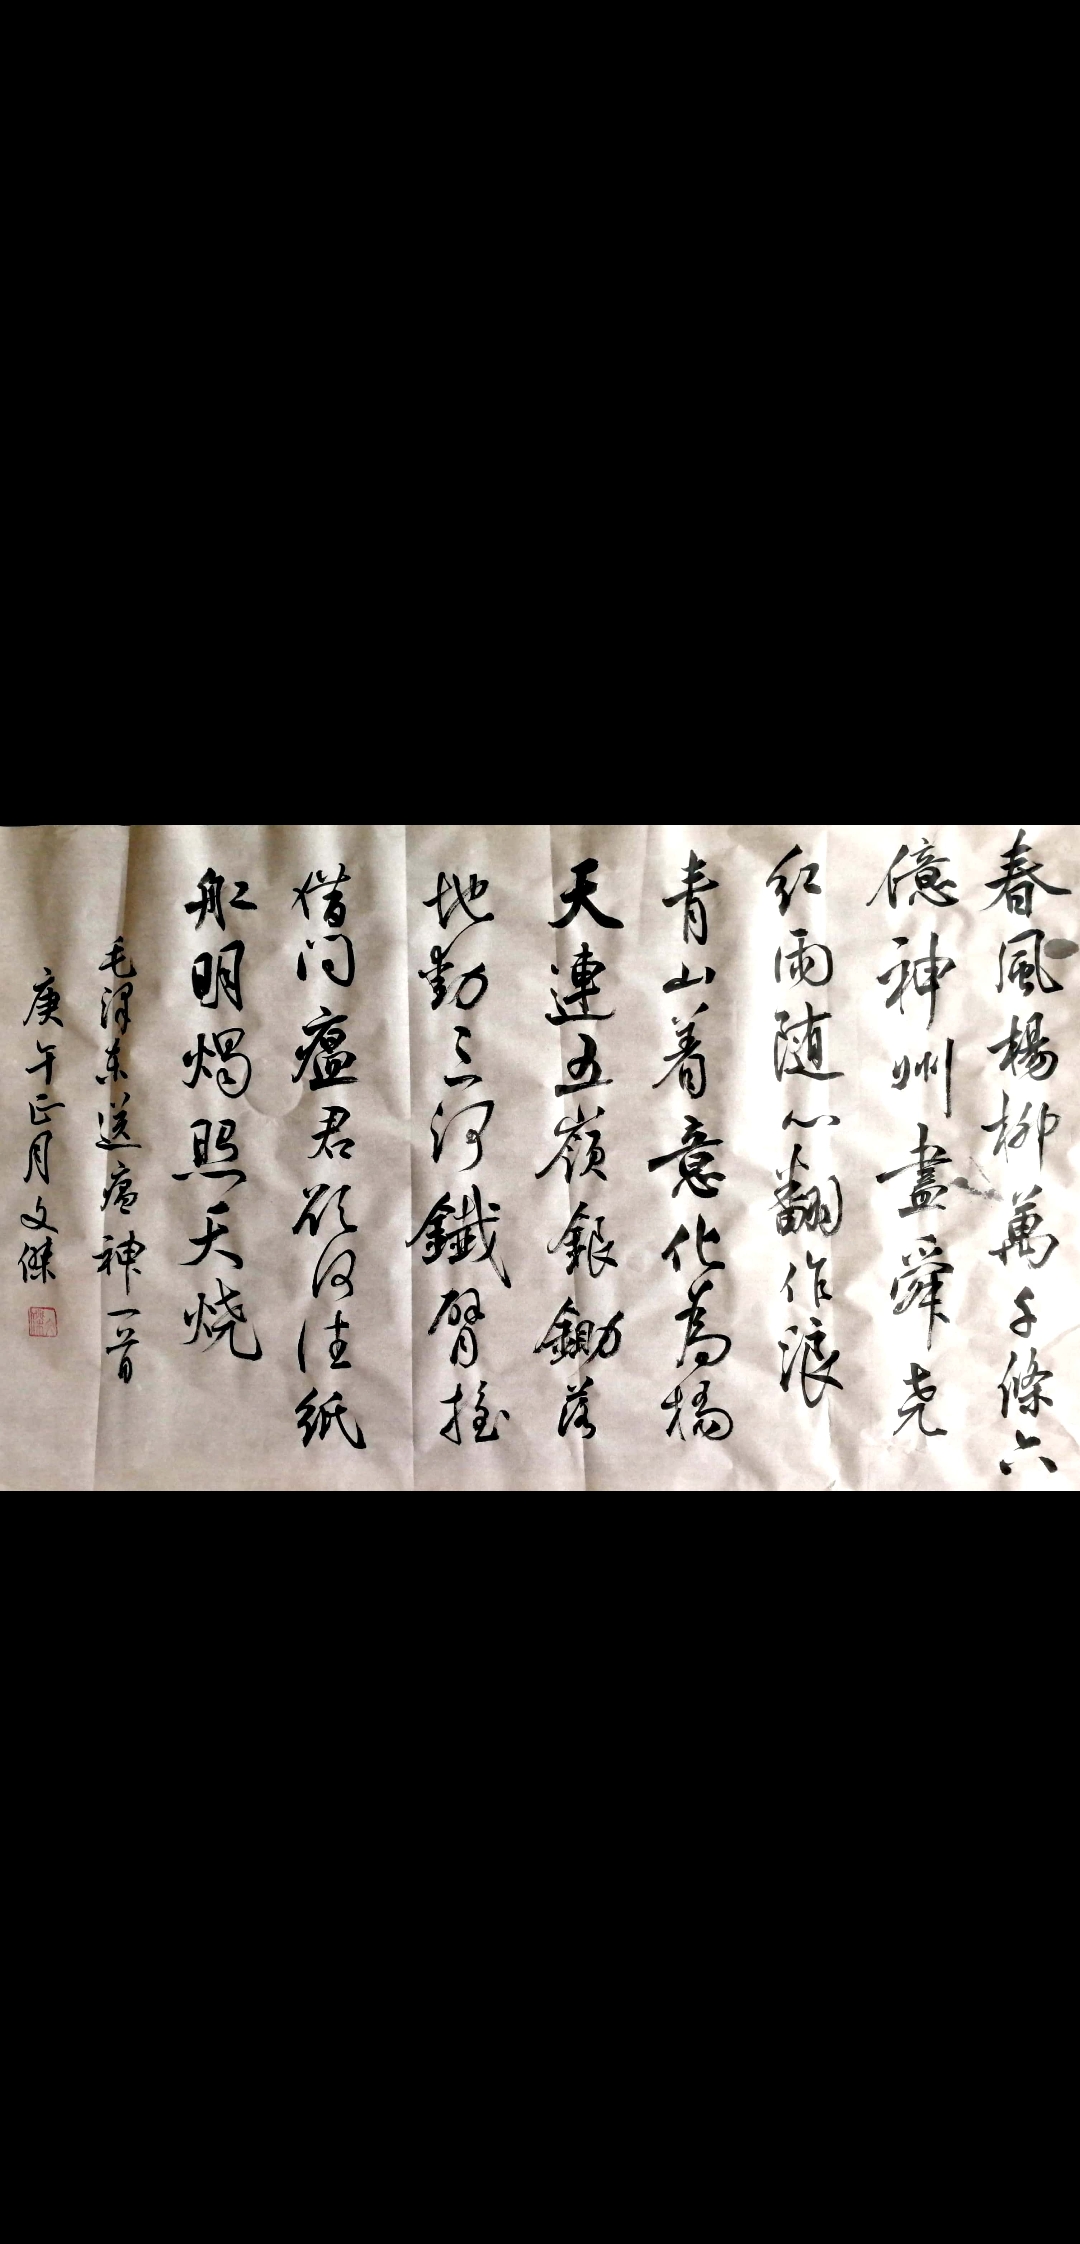 春風楊柳萬千條六
億神州盡舜尧
红雨随心翻作浪
青山着意化為橋
天連五嶺銀鋤落
地動三河鐵臂摇
借问瘟君欲何往纸
船明燭照天烧
毛泽东送瘟神一首
庚午正月文傑